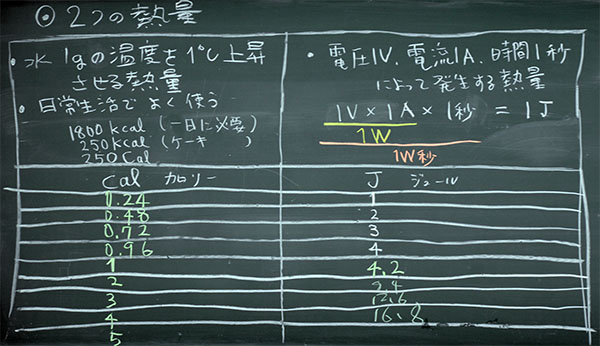 ◎2つの熱量
・水 1gの温度を1℃上昇
させる熱量
・日常生活でよく使う
1800 kcal (一日に必要)
250 kcal (ケーキ )
250 Cal
・電圧1V、電流1A、時間1秒
によって発生する熱量
1V × 1A × 1秒 = 1J
1W
1W秒
Cal カロリー
J ジュール
0.24
1
0.48
2
0.72
3
0.96
4
1
4.2
2
3
12.6
4
16.8
5